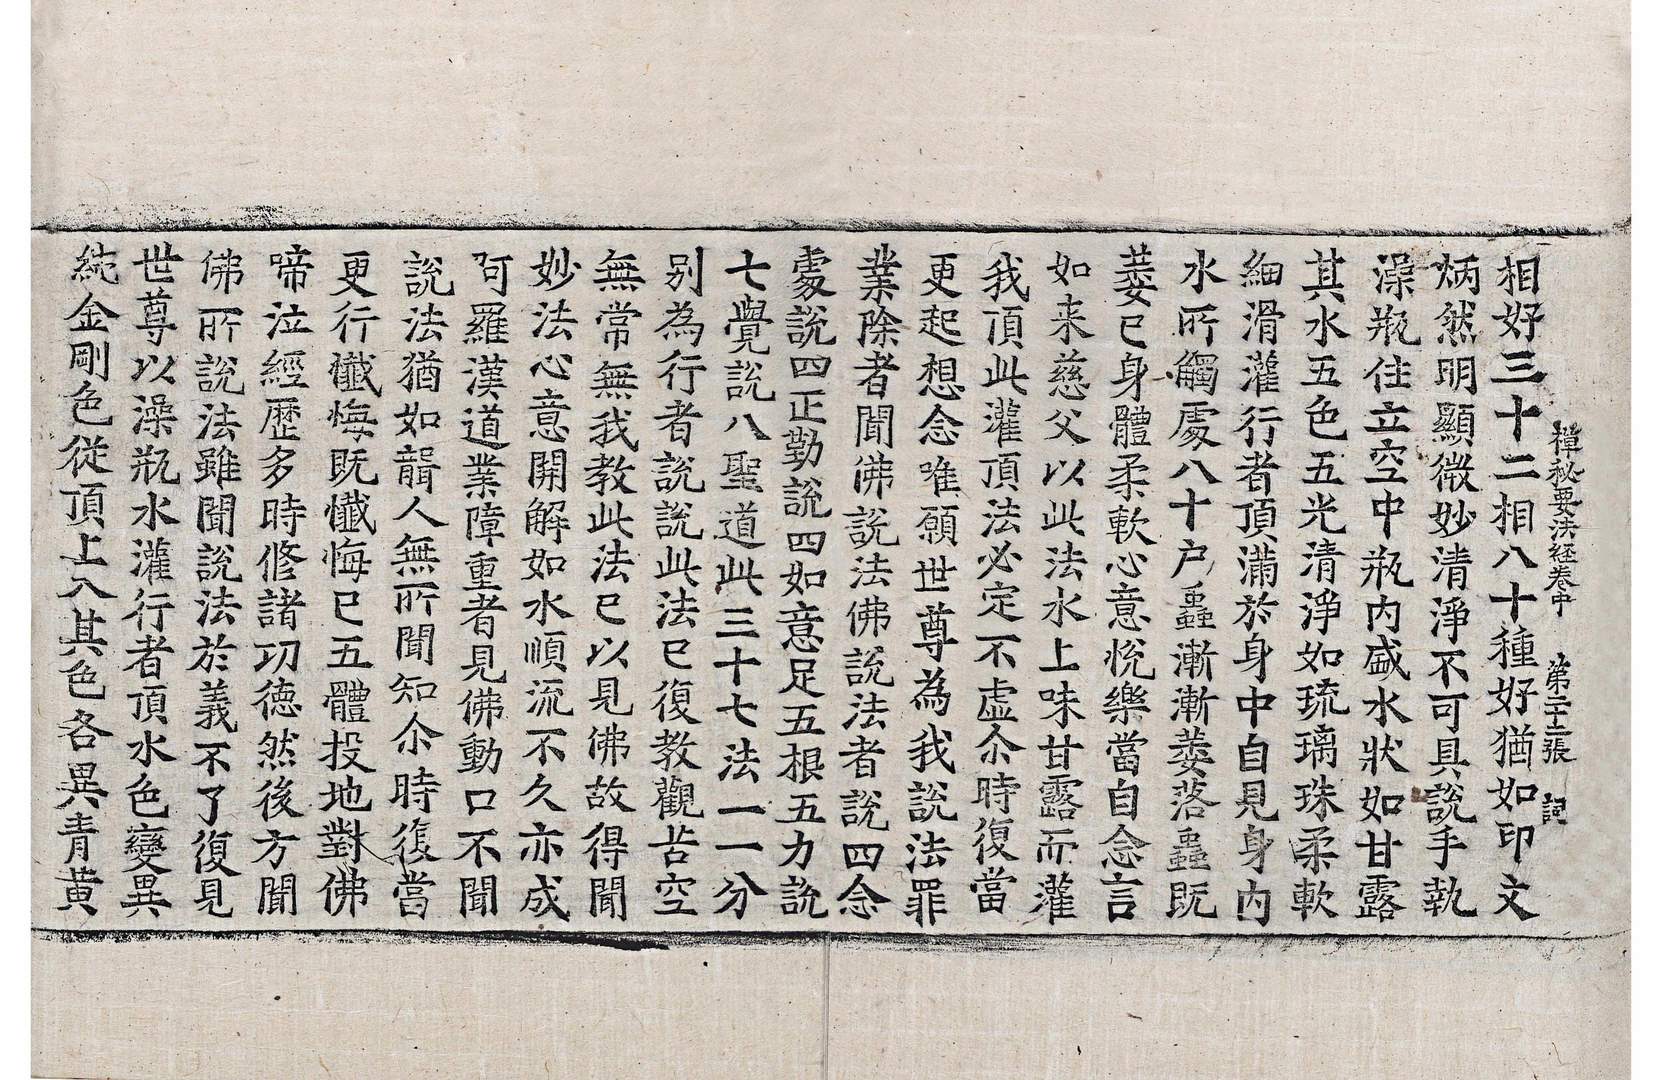 禪秘要法經卷中 第 張 詞
相好三十二相八十種好猶如印文
炳然明顯微妙清淨不可具說手執
澡瓶住立空中瓶内盛水狀如甘露
其水五色五光清淨如琉璃珠柔軟
細滑灌行者頂滿於身中自見身内
水所觸處八十户蟲漸漸萎落蟲既
萎已身體柔軟心意悅樂當自念言
如来慈父以此法水上味甘露而灌
我頂此灌頂法必定不虛尒時復當
更起想念唯願世尊為我說法罪
業除者聞佛說法佛說法者說四念
處說四正勤說四如意足五根五力說
七覺說八聖道此三十七法一一分
别為行者說說此法已復教觀苦空
無常無我教此法已以見佛故得聞
妙法心意開解如水順流不久亦成
阿羅漢道業障重者見佛動口不聞
說法猶如聾人無所聞知尒時復當
更行懺悔既懺悔已五體投地對佛
啼泣經歷多時修諸功德然後方聞
佛所說法雖聞說法於義不了復見
世尊以澡瓶水灌行者頂水色變異
純金剛色從頂上入其色各異青黄